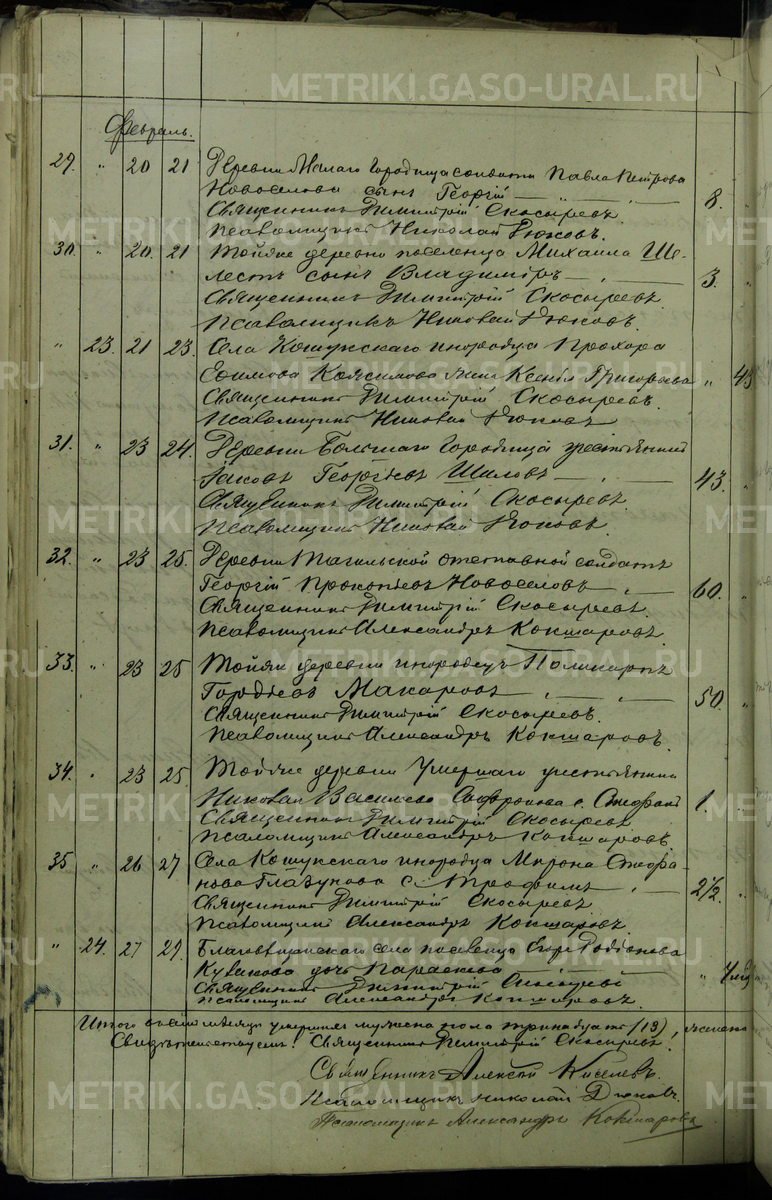 Февраль.
29. " 20 21 Деревни Малаго Городища солдата Павла Петрова
Новоселова сынъ Георгій 8.
Священникъ Димитрій Скосыревъ.
Псаломщикъ Николай Дюковъ.
30. " 20 21 деревни поселенца Михаила Ше-
лестъ сынъ Владиміръ 3.
Священникъ Димитрій Скосыревъ
Псаломщикъ Николай Дюковъ.
" 23. 21 23. Села Кошукскаго инородца Прохора
Ефимова жена Ксенія Григорьева " 43
Священникъ Димитрій Скосыревъ.
Псаломщикъ Николай Дюковъ
31. " 23 24. Деревни Большаго Городища крестьянинъ
Іаковъ Георгіевъ Шиловъ 43.
Священникъ Димитрій Скосыревъ.
Псаломщикъ Николай Дюковъ.
32. " 23 25. Деревни Тагильской отставной солдатъ
Георгій Прокопьевъ Новоселовъ 60.
Священникъ Димитрій Скосыревъ.
Псаломщикъ Александръ Кокшаровъ.
33. " 23 25 деревни инородецъ Поликарпъ
Гордѣевъ Макаровъ 50.
Священникъ Димитрій Скосыревъ.
Псаломщикъ Александръ Кокшаровъ.
34. " 23 25. деревни умершаго крестьянина
Николая Васильева Софронова с. Стефанъ 1.
Священникъ Димитрій Скосыревъ
Псаломщикъ Александръ Кокшаровъ.
35 " 26 27 Села Кошукскаго инородца Мирона Стефа-
нова Глазунова с. Трофимъ 2½.
Священникъ Димитрій Скосыревъ
Псаломщикъ Александръ Кокшаровъ.
" 24. 27 29. Благовѣщенскаго села поселенца Егора Родіонова
Кувакова дочь Параскева "
Священникъ Димитрій Скосыревъ
Псаломщикъ Александръ Кокшаровъ.
Итого въ мѣсяцѣ умершихъ мужеска пола тринадцать (13), женска
Свидѣтельствуемъ: Священникъ Димитрій Скосыревъ.
Священникъ Алексѣй Киселевъ.
Псаломщикъ Николай Дюковъ.
Псаломщикъ Александръ Кокшаровъ
METRIKI.GASO-URAL.RU